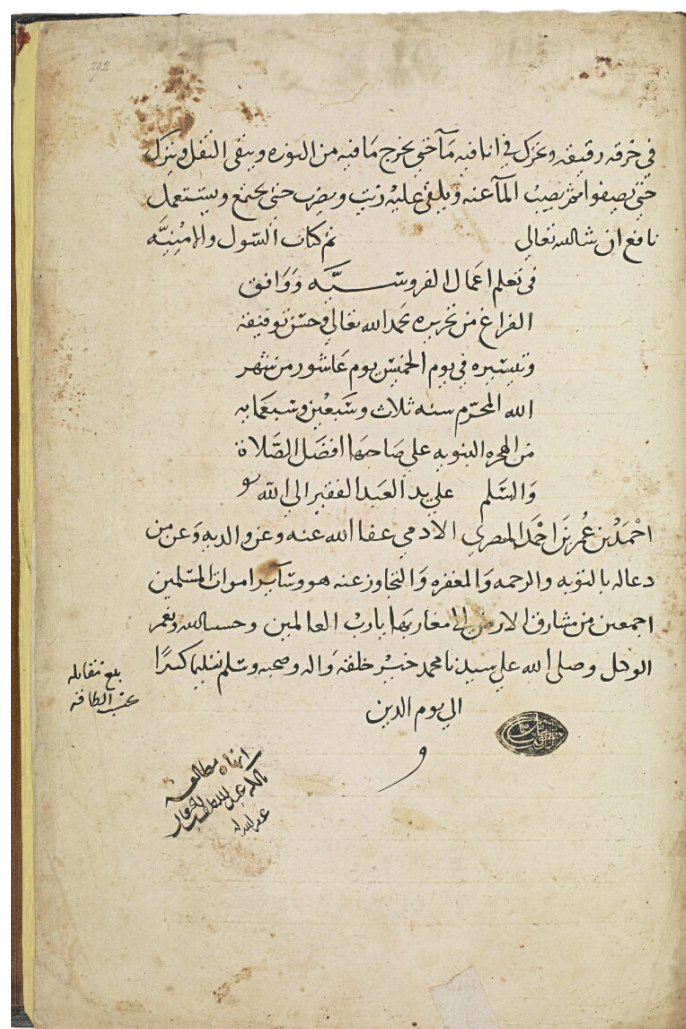 272
في خرقه رقيقه وتحرك في انا فيه مآ حتي يخرج ما فيه من النوره ويبقي الثفل ويترك
حتي يصفوا ثم يصب المآ عنه ويلقي عليه زيت ويضرب حتي يجتمع ويستعمل
نافع ان شا الله تعالي تم كتاب السول والامنيه
في تعلم اعمال الفروسيه ووافق
الفراغ من تحريره بحمد الله تعالي وحسن توفيقه
وتيسيره في يوم الخميس يوم عاشور من شهر
الله المحرم سنه ثلاث وسبعين وسبعمايه
من الهجره النبويه علي صاحبها افضل الصلاة
والسلم علي يد العبد الفقير الي الله
احمد بن عمر بن احمد المصري الادمي عفا الله عنه وعن والديه وعن من
دعا له بالتوبه والرحمه والمغفره والتجاوز عنه هو وساير اموات المسلمين
اجمعين من مشارق الارض الي مغاربها يا رب العالمين وحسبنا الله ونعم
الوكيل وصلي الله علي سيدنا محمد خير خلقه واله وصحبه وسلم تسليما كثيرا
الي يوم الدين
بلغ مقابله
بحسب الطاقه
انهاه مطالعه